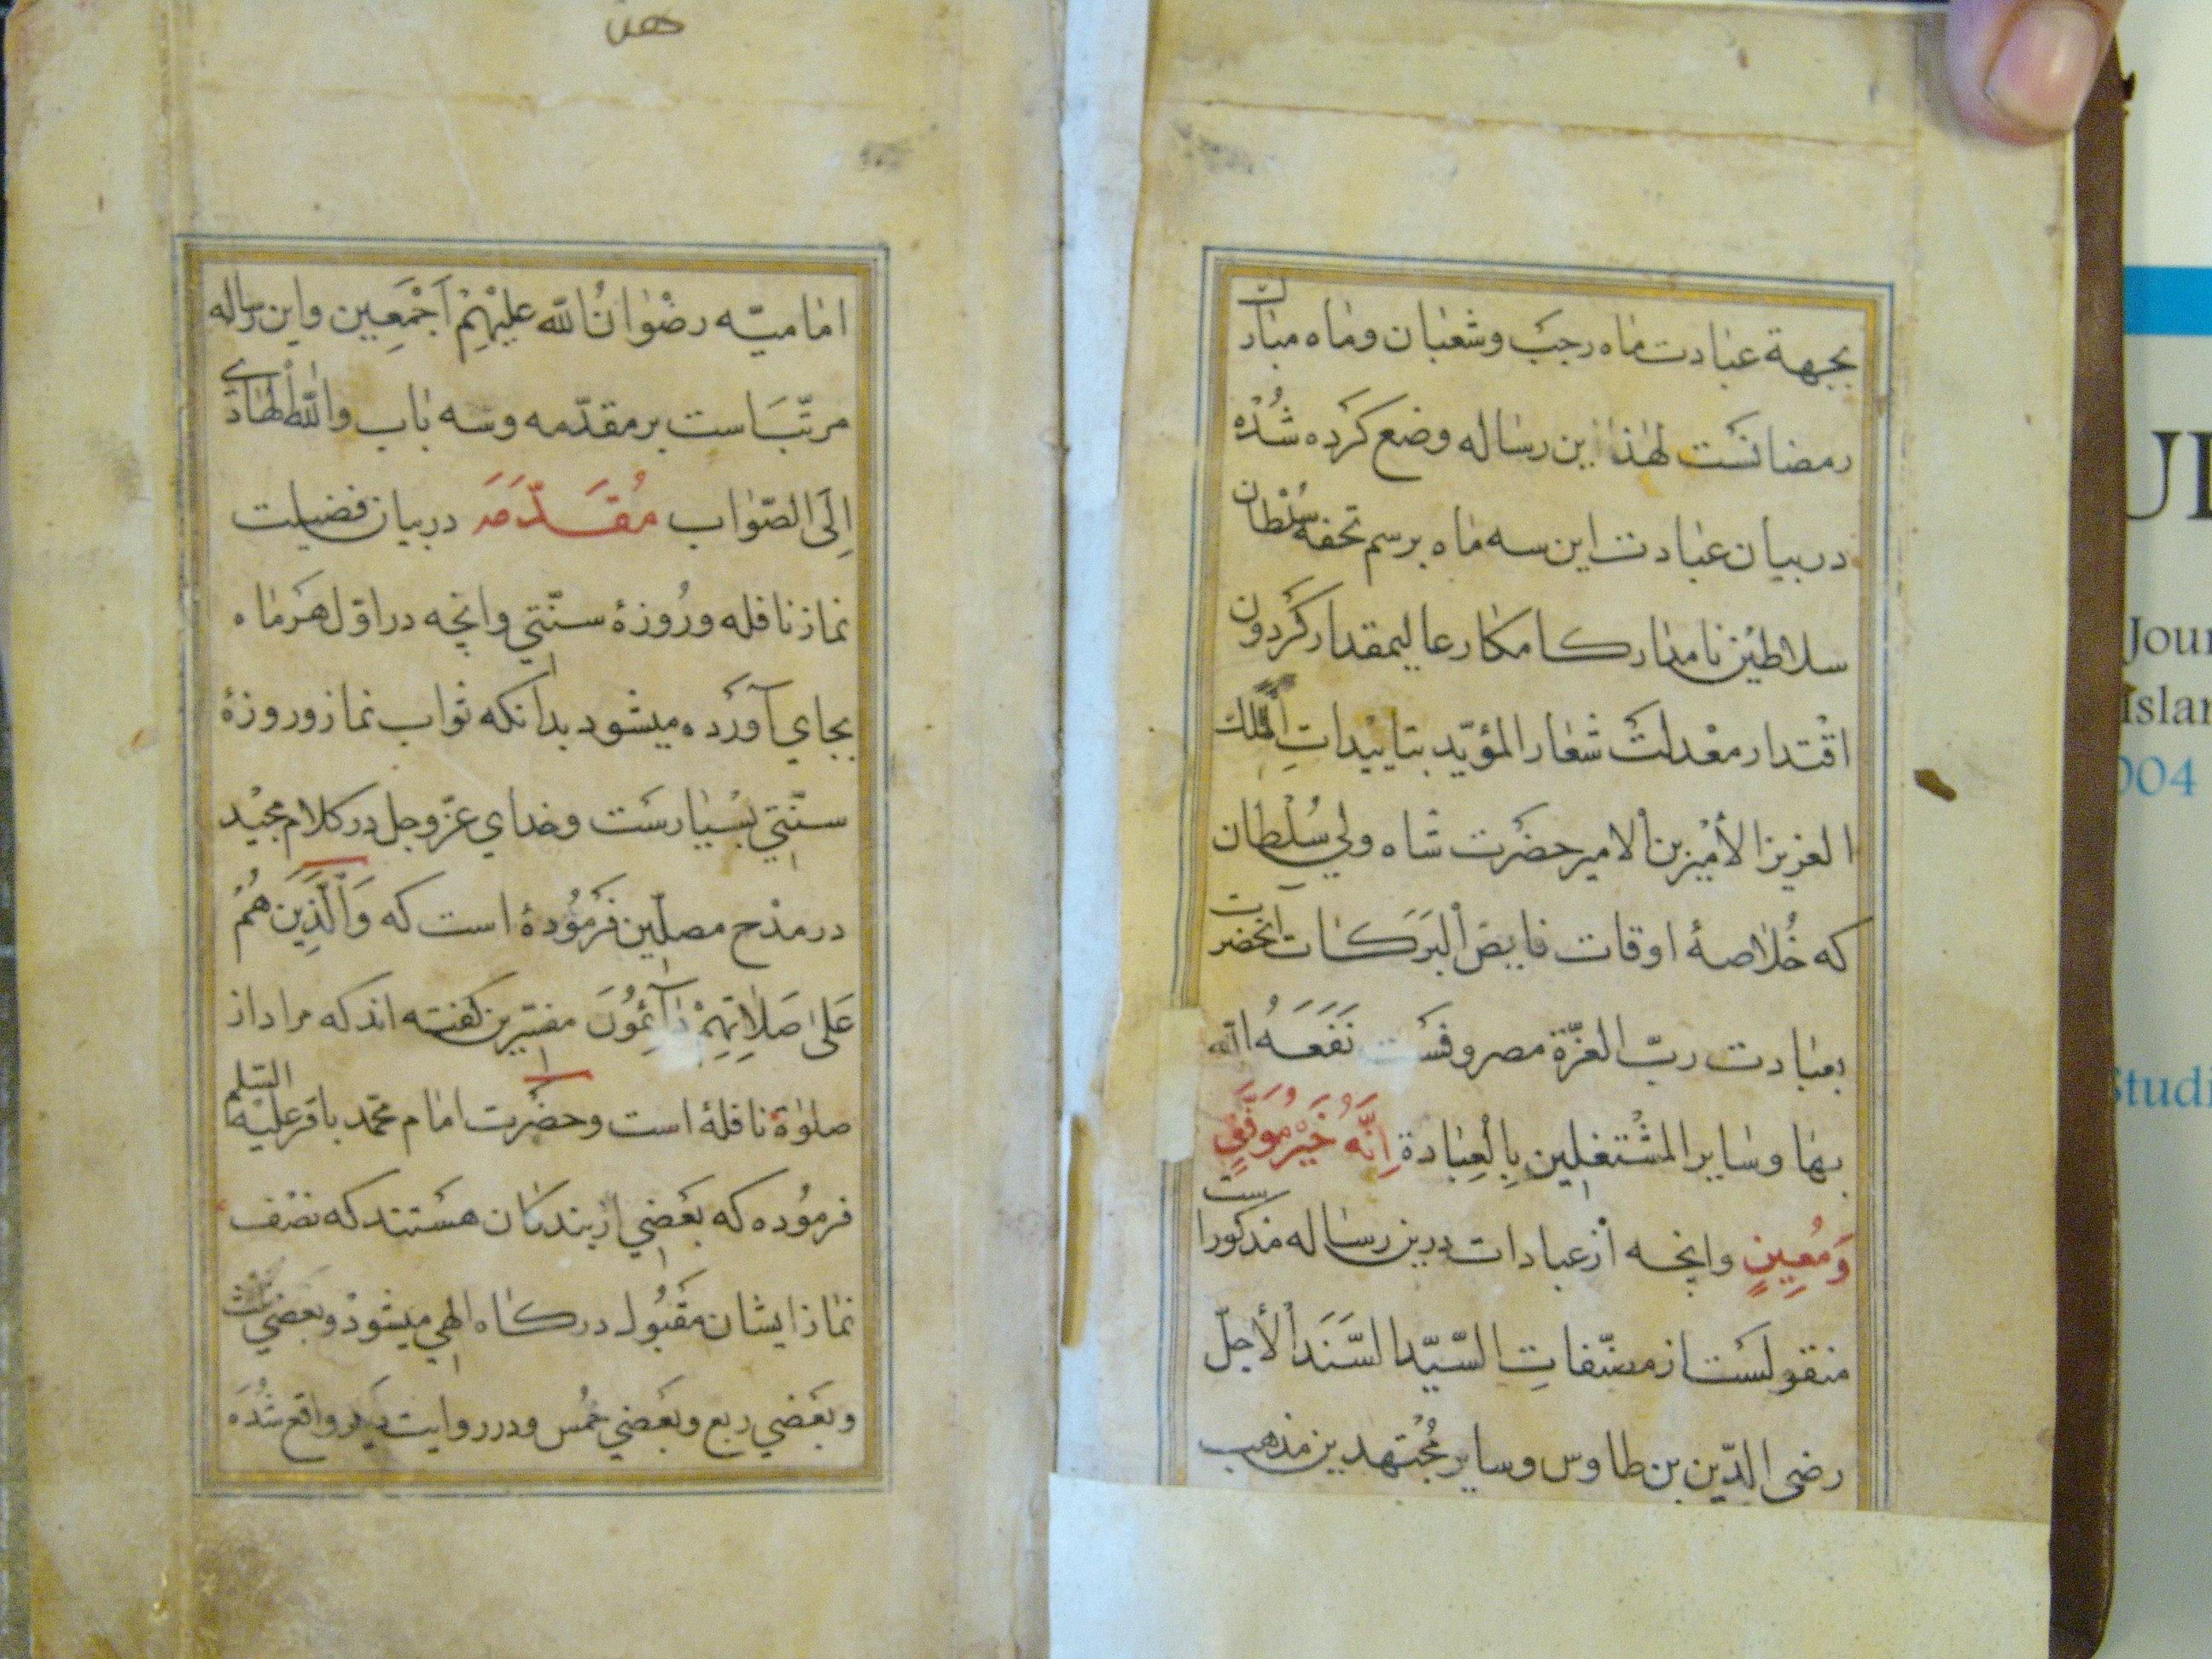 بجهة عبادت ماه رجب وشعبان وماه مبارك
رمضانست لهذا این رساله وضع کرده شده
در بیان عبادت این سه ماه برسم تحفه سلطان
سلاطین نامدار کامکار عالیمقدار کردون
اقتدار معدلت شعار المؤیّد بتاییداتِ الملك
العزیز الأمیر بن الامیر حضرت شاه ولي سُلطان
که خُلاصهٔ اوقات فایض البرکات آنحضرت
بعبادت ربّ العزّة مصروفست نَفَعَهُ الله
بها وسایر المشتغلین بِالعِبادة اِنَّهُ خَیْرُ مُوَفِّقٍ
وَمُعِینٍ وانچه از عبادات درین رساله مذکور است
منقولست از مصنّفاتِ السّیّد السَّنَد الأجلّ
رضی الدّین بن طاوس وسایر مُجْتهدین مذهب
امامیّه رضْوانُ الله علیْهِمْ اَجْمَعِین واین رساله
مرتّب است بر مقدّمه وسه باب والله الهادي
اِلَی الصّواب مُقَدّمَه در بیان فضیلت
نماز نافله ورُوزهٔ سنّتي وانچه در اوّل هر ماه
بجاي آورده میشود بدانکه ثواب نماز وروزهٔ
سنّتي بسْیارست وخداي عزّ وجل در کلام مجیْد
در مدْح مصلّین فرمُودهٔ است که وَالَّذِینَ هُمْ
عَلیٰ صَلاتِهِمْ دٰآئِمُونَ مفسّرین کفته اند که مراد از
صلوٰة نافلهٔ است وحضرت امام محمّد باقر علیْه السّلم
فرمُوده که بعَضي از بندکان هستند که نصْف
نماز ایشان مقبُول درکاه الهي میشودْ وبعضي ثلث
وبعَضي ربع وبعَضي خمُس ودر روایت دیکر واقع شُدَه